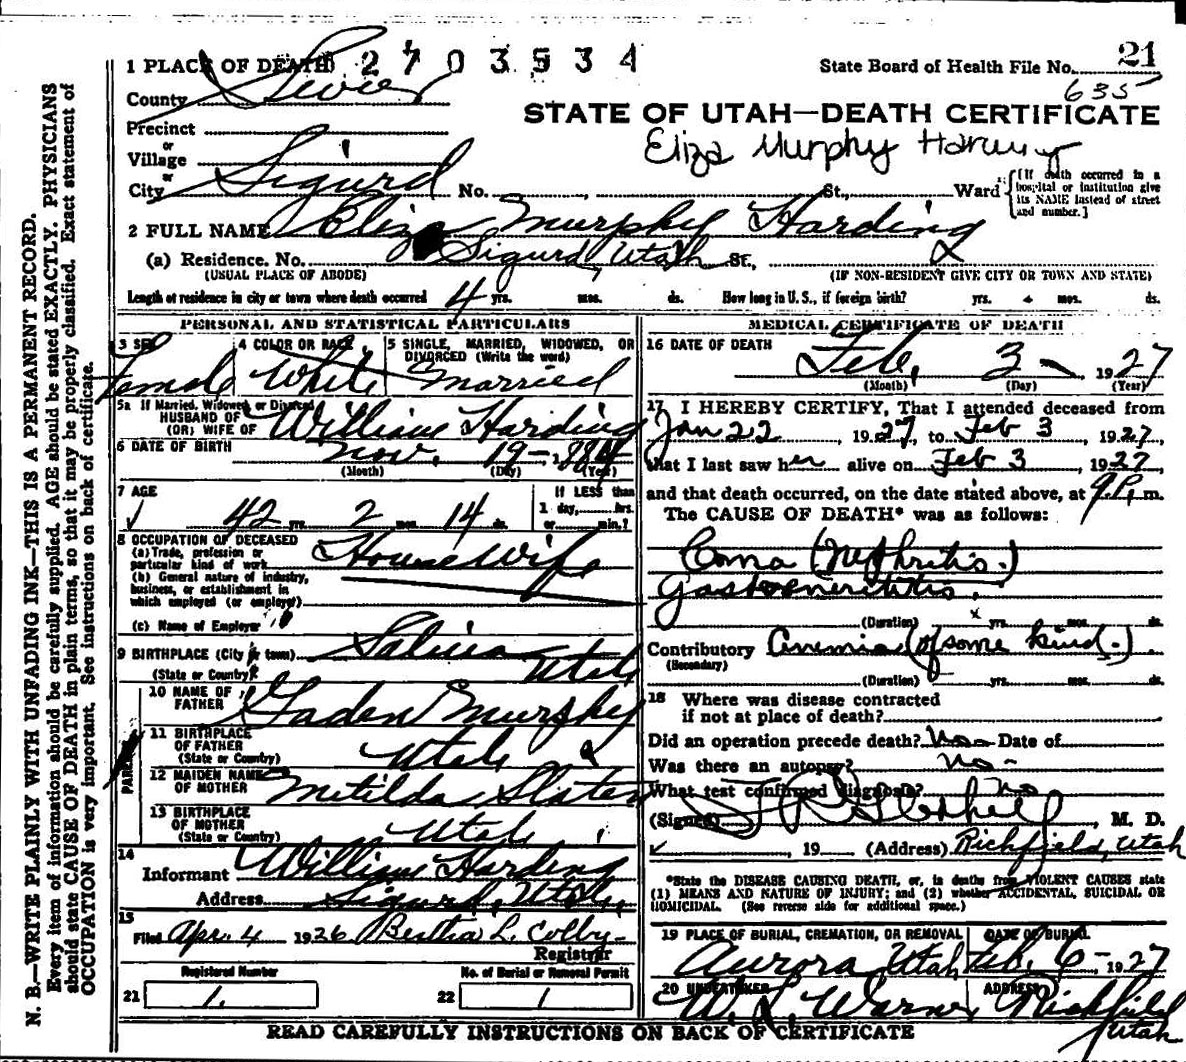 1 PLACE OF DEATH 2703534
State Board of Health File No. 21
635
County Sevier
STATE OF UTAH—DEATH CERTIFICATE
Precinct
or
Village
Eliza Murphy
or
City Sigurd No. , St., Ward
{[If death occurred in a hospital or institution give its NAME instead of street and number.]
2 FULL NAME Eliza Murphy Harding
(a) Residence. No. Sigurd, Utah St.,
(USUAL PLACE OF ABODE) (IF NON-RESIDENT GIVE CITY OR TOWN AND STATE)
Length of residence in city or town where death occurred 4 yrs. mos. ds. How long in U. S., if foreign birth? yrs. mos. ds.
PERSONAL AND STATISTICAL PARTICULARS
3 SEX 4 COLOR OR RACE 5 SINGLE, MARRIED, WIDOWED, OR DIVORCED (Write the word)
Female White Married
5a If Married, Widowed, or Divorced
HUSBAND OF
(OR) WIFE OF William Harding
6 DATE OF BIRTH Nov. 19- 1884
(Month) (Day) (Year)
7 AGE If LESS than
42 yrs. 2 mos. 14 ds. 1 day, hrs.
or min.?
8 OCCUPATION OF DECEASED
(a) Trade, profession or
particular kind of work Housewife
(b) General nature of industry,
business, or establishment in
which employed (or employer)
(c) Name of Employer
9 BIRTHPLACE (City or town) Salina
(State or Country) Utah
PARENTS
10 NAME OF
FATHER Murphy
11 BIRTHPLACE
OF FATHER
(State or Country) Utah
12 MAIDEN NAME
OF MOTHER Matilda Slater
13 BIRTHPLACE
OF MOTHER
(State or Country) Utah
14
Informant William Harding
Address Sigurd, Utah,
15
Filed Apr. 4 1926 Bertha L. Colby
Registrar
Registered Number No. of Burial or Removal Permit
21 1. 22 1
MEDICAL CERTIFICATE OF DEATH
16 DATE OF DEATH Feb, 3 1927
(Month) (Day) (Year)
17 I HEREBY CERTIFY, That I attended deceased from
Jan 22, 1927, to Feb 3, 1927,
that I last saw her alive on Feb 3, 1927,
and that death occurred, on the date stated above, at 9 P. m.
The CAUSE OF DEATH* was as follows:
Coma (Nephritis.)
(Duration) yrs. ds.
Contributory Anemia (of some kind.).
(Secondary)
(Duration) yrs. mos. ds.
18 Where was disease contracted
if not at place of death?
Did an operation precede death? No Date of
Was there an autopsy? No-
What test confirmed diagnosis? no
(Signed) , M. D.
, 19 (Address) Richfield, Utah
*State the DISEASE CAUSING DEATH, or, in deaths from VIOLENT CAUSES state
(1) MEANS AND NATURE OF INJURY; and (2) whether ACCIDENTAL, SUICIDAL OR
HOMICIDAL. (See reverse side for additional space.)
19 PLACE OF BURIAL, CREMATION, OR REMOVAL DATE OF BURIAL
Aurora Utah Feb. 6- 1927
20 UNDERTAKER ADDRESS
W. L. Warner Richfield
Utah
READ CAREFULLY INSTRUCTIONS ON BACK OF CERTIFICATE
N. B.—WRITE PLAINLY WITH UNFADING INK—THIS IS A PERMANENT RECORD.
Every item of information should be carefully supplied. AGE should be stated EXACTLY. PHYSICIANS
should state CAUSE OF DEATH in plain terms, so that it may be properly classified. Exact statement of
OCCUPATION is very important. See instructions on back of certificate.